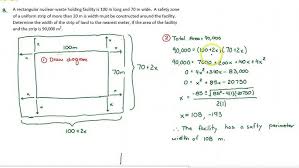 8. A rectangular nuclear-waste holding facility is 100 m long and 70 m wide. A safety zone
of a uniform strip of more than 10 m in width must be constructed around the facility.
Determine the width of the strip of land to the nearest meter, if the area of the facility
and the strip is 90,000 m².
100m
① Draw diagram
70m
70 + 2x
100 + 2x
② Total Area = 90,000
90,000 = (100+2x)(70+2x)
90,000 = 7000 + 200x + 140x + 4x²
0 = 4x² + 340x - 83,000
0 = x² + 85x - 20750
x = -85 ± √(85² - 4(1)(-20750)
2(1)
x = 108, -193
∴ The facility has a safty perimeter
width of 108 m.